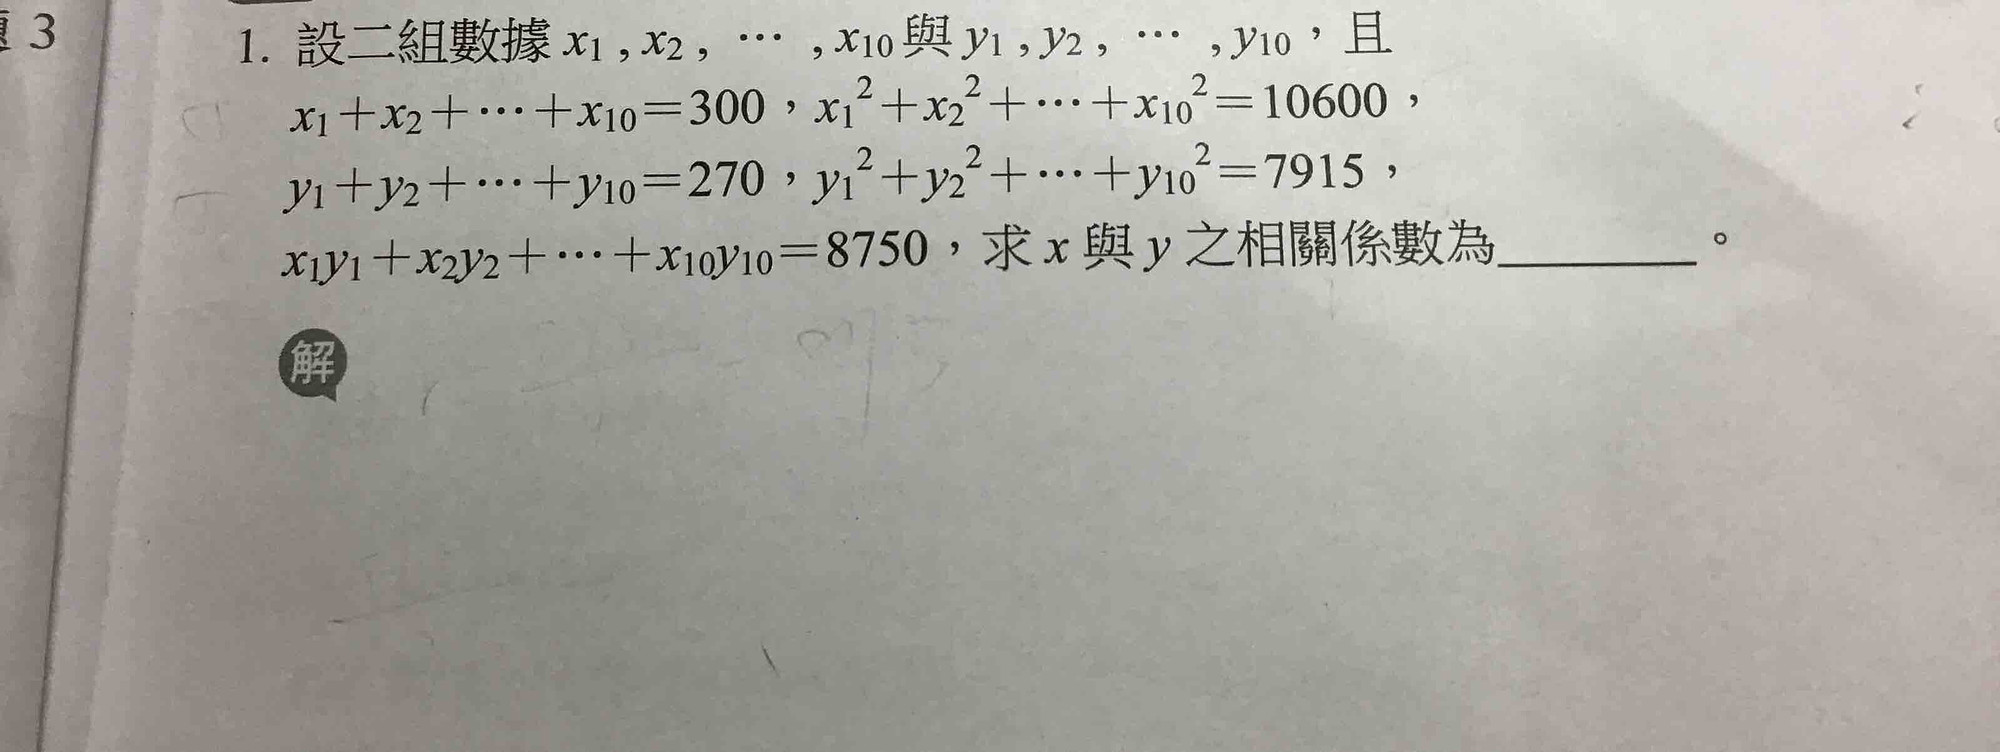 3
1. 設二組數據 x₁ , x₂ , ⋯ , x₁₀ 與 y₁ , y₂ , ⋯ , y₁₀，且
x₁＋x₂＋⋯＋x₁₀＝300，x₁²＋x₂²＋⋯＋x₁₀²＝10600，
y₁＋y₂＋⋯＋y₁₀＝270，y₁²＋y₂²＋⋯＋y₁₀²＝7915，
x₁y₁＋x₂y₂＋⋯＋x₁₀y₁₀＝8750，求 x 與 y 之相關係數為________。
解